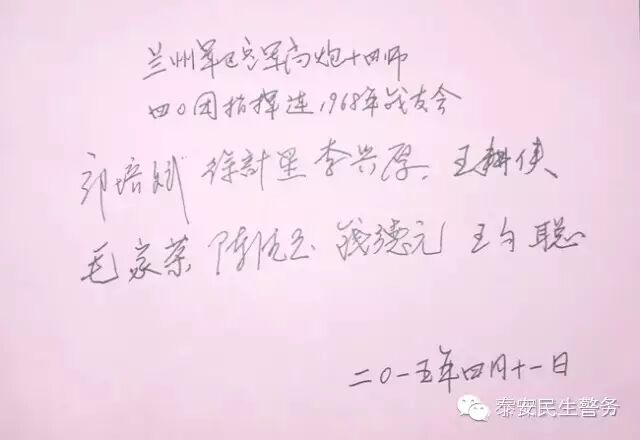 兰州军区空军高炮十四师
四〇团指挥连1968年战友会
郭培斌 徐計星 李兴厚、王耕侠、
毛家荣 陈伍玉 钱德元 王自聪
二〇一五年四月十一日
泰安民生警务